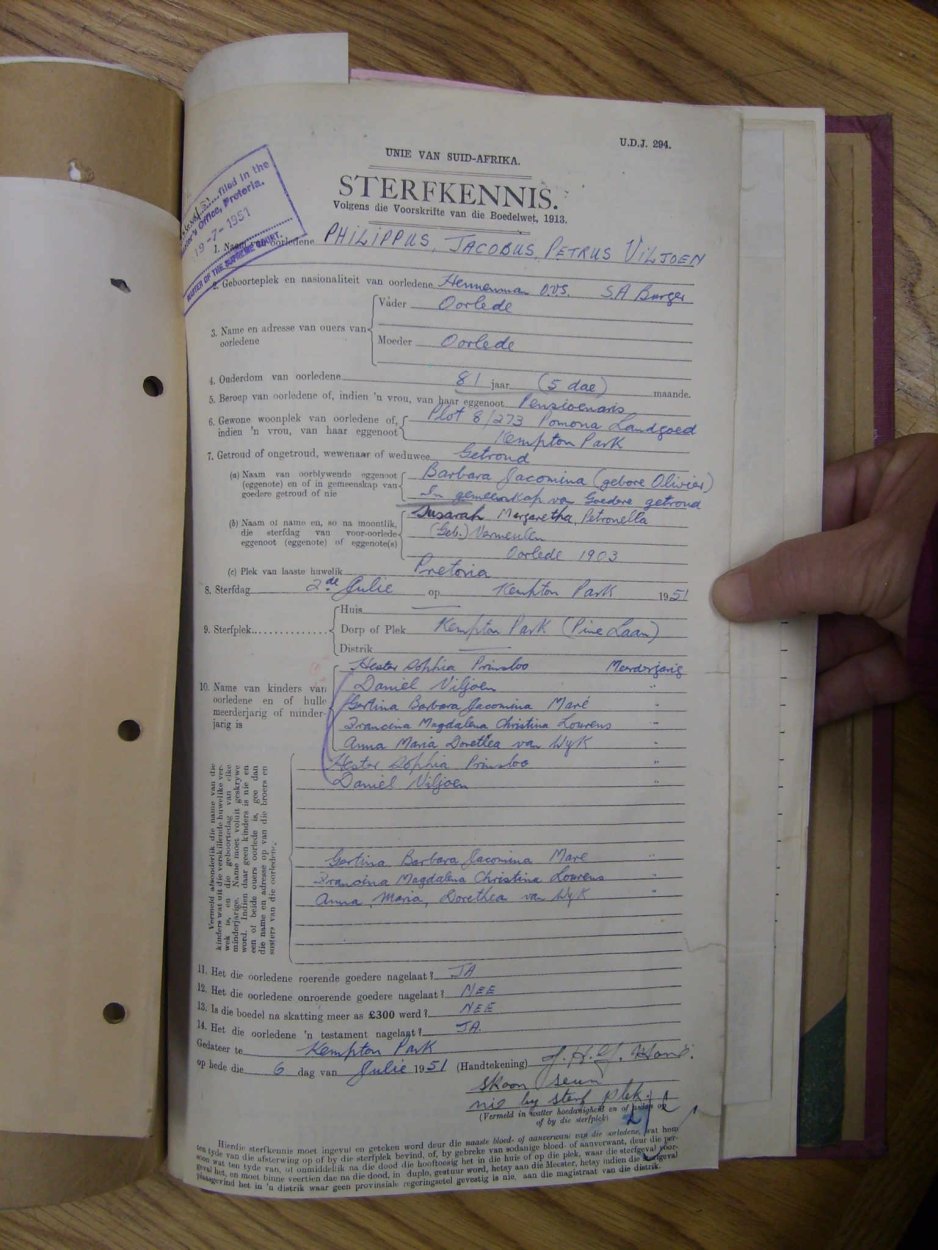 U.D.J. 294.
UNIE VAN SUID-AFRIKA.
STERFKENNIS.
Volgens die Voorskrifte van die Boedelwet, 1913.
filed in the
Office, Pretoria.
19-7-1951
MASTER OF THE SUPREME COURT.
1. Naam van oorledene PHILIPPUS, JACOBUS, PETRUS VILJOEN
2. Geboorteplek en nasionaliteit van oorledene Hennenman O.V.S. S.A Burger
3. Name en adresse van ouers van oorledene
Vader Oorlede
Moeder Oorlede
4. Ouderdom van oorledene 81 jaar (5 dae) maande.
5. Beroep van oorledene of, indien 'n vrou, van haar eggenoot Pensioenaris
6. Gewone woonplek van oorledene of, Plot 8/273 Pomona Landgoed
indien 'n vrou, van haar eggenoot Kempton Park
7. Getroud of ongetroud, wewenaar of weduwee Getroud
(a) Naam van oorblywende eggenoot Barbara Jacomina (gebore Olivier)
(eggenote) en of in gemeenskap van
goedere getroud of nie In gemeenskap van Goedere getroud
(b) Naam of name en, so na moontlik, Susarah Margaretha Petronella
die sterfdag van voor-oorlede (Geb.) Vermeulen
eggenoot (eggenote) of eggenote(s) Oorlede 1903
(c) Plek van laaste huwelik Pretoria
8. Sterfdag 2de Julie op Kempton Park 1951
9. Sterfplek
Huis
Dorp of Plek Kempton Park (Pine Laan)
Distrik
10. Name van kinders van
oorledene en of hulle
meerderjarig of minder-
jarig is
Hester Sophia Prinsloo Meerderjarig
Daniel Viljoen "
Gertina Barbara Jacomina Maré "
Francina Magdalena Christina Lourens "
Anna Maria Dorethea van Wyk "
Hester Sophia Prinsloo "
Daniel Viljoen "
Gertina Barbara Jacomina Maré "
Francina Magdalena Christina Lourens "
Anna, Maria, Dorethea van Wyk "
Vermeld afsonderlik die name van die
kinders wat uit die verskillende huwelike ver-
wek is, en die geboortedag van elke
minderjarige. Name moet voluit geskrywe
word. Indien daar geen kinders is nie en
een of beide ouers oorlede is, gee dan
die name en adresse op van die broers en
susters van die oorledene.
11. Het die oorledene roerende goedere nagelaat? JA
12. Het die oorledene onroerende goedere nagelaat? NEE
13. Is die boedel na skatting meer as £300 werd? NEE
14. Het die oorledene 'n testament nagelaat? JA.
Gedateer te Kempton Park
op hede die 6 dag van Julie 1951 (Handtekening)
skoon seun
nie by sterf plek.
(Vermeld in watter hoedanigheid en of
of by die sterfplek)
Hierdie sterfkennis moet ingevul en geteken word deur die naaste bloed- of aanverwant van die oorledene, wat hom
ten tyde van die afsterwing op of by die sterfplek bevind, of, by gebreke van sodanige bloed- of aanverwant, deur die per-
soon wat ten tyde van, of onmiddellik na die dood die hooftoesig het in die huis of op die plek, waar die sterfgeval voor-
geval het, en moet binne veertien dae na die dood, in duplo, gestuur word, hetsy aan die Meester, hetsy indien die sterfgeval
plaasgevind het in 'n distrik waar geen provinsiale regeringsetel gevestig is nie, aan die magistraat van die distrik.